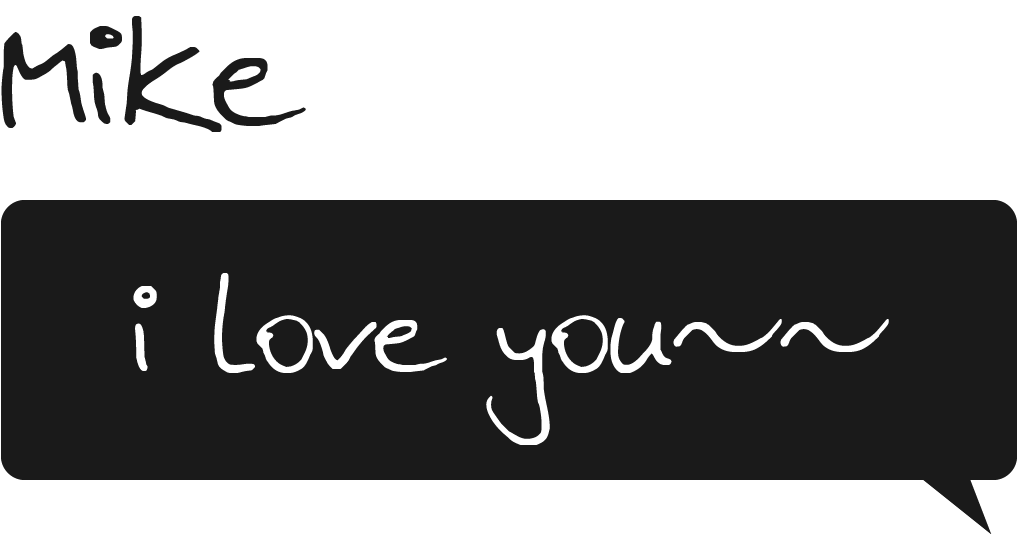 Mike
i love you~~